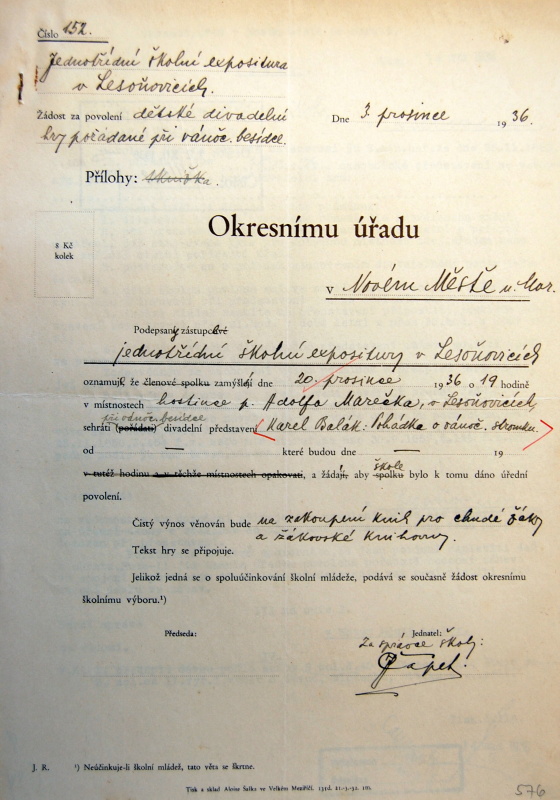 Číslo 152.
Jednotřídní školní expositura
v Lesoňovicích.
Žádost za povolení dětské divadelní
hry pořádané při vánoč. besídce.
Dne 3. prosince 1936.
Přílohy: knížka.
8 Kč
kolek
Okresnímu úřadu
v Novém Městě n. Mor.
Podepsaný zástupce
jednotřídní školní expositury v Lesoňovicích
oznamují, že členové spolku zamýšlejí dne 20. prosince 1936 o 19 hodině
v místnostech hostince p. Adolfa Marečka, v Lesoňovicích
při vánoč. besídce
sehráti (pořádati) divadelní představení Karel Balák: Pohádka o vánoč. stromku.
od — které budou dne — 19
v tutéž hodinu a v těchže místnostech opakovati, a žádají, aby spolku škole bylo k tomu dáno úřední
povolení.
Čistý výnos věnován bude na zakoupení knih pro chudé žáky
a žákovské knihovny.
Text hry se připojuje.
Jelikož jedná se o spoluúčinkování školní mládeže, podává se současně žádost okresnímu
školnímu výboru.¹)
Předseda:
Jednatel:
Za správce školy:
Čápet.
J. R. ¹) Neúčinkuje-li školní mládež, tato věta se škrtne.
Tisk a sklad Aloise Šaška ve Velkém Meziříčí.
576